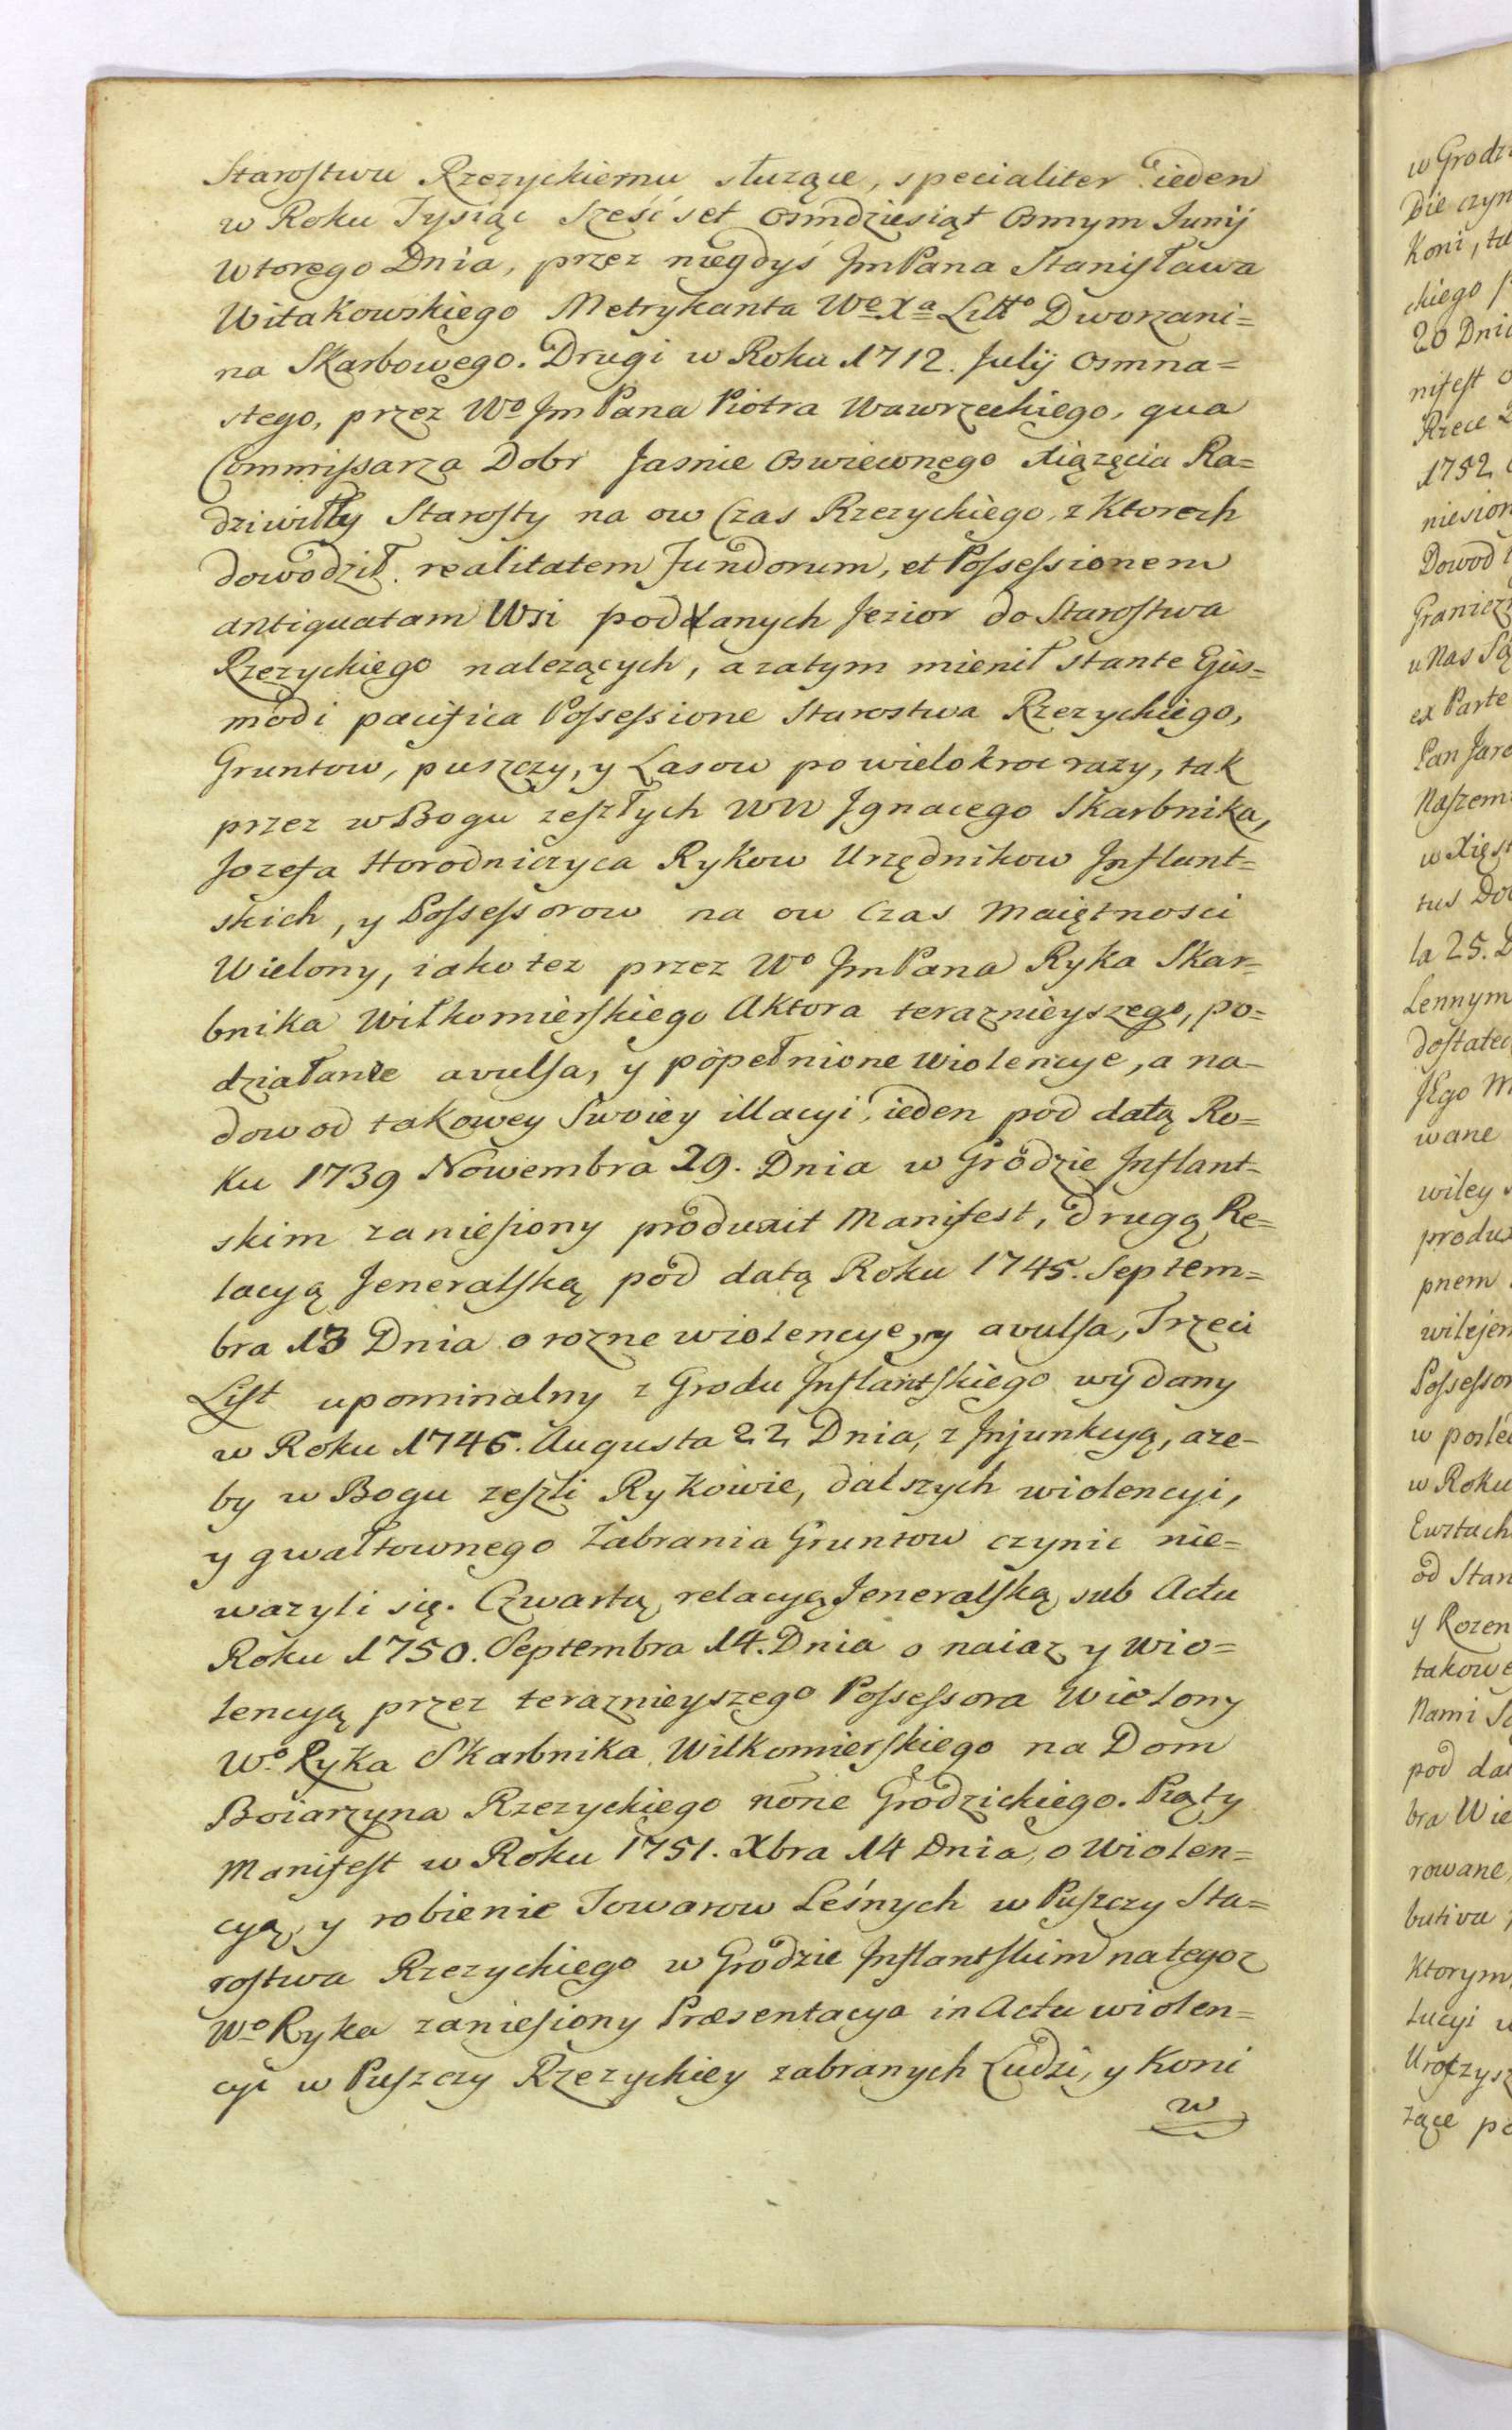 Starostwu Rzezyckiemu służące, specialiter ieden
w Roku Tysiąc Sześćset osmdziesiąt osmym Junij
wtorego Dnia, przez niegdyś JmPana Stanisława
Witakowskiego Metrykanta Wo Xa Litto Dworzani=
na Skarbowego. Drugi w Roku 1712. Julij osmna=
stego, przez Wo Jm Pana Piotra Wawrzeckiego, qua
Commissarza Dobr Jasnie oswieconego Xiązęcia Ra=
dziwiłły Starosty na ow Czas Rzezyckiego, z Ktorech
dowodził realitatem Fundorum, et Possessionem
antiquatam Wsi poddanych Jezior do Starostwa
Rzezyckiego nalezących, a zatym mienił stante Ejus=
modi pacifica Possessione Starostwa Rzezyckiego,
Gruntow, puszczy, y Lasow powielokroc razy, tak
przez w Bogu zeszłych WW Jgnacego Skarbnika,
Jozefa Horodniczyca Rykow Urzędnikow Inflant=
skich, y Possessorow na ow Czas Maiętnosci
Wielony, iako tez przez Wo JmPana Ryka Skar=
bnika Wiłkomierskiego Aktora teraznieyszego, po=
działane avulsa, y popełnione wiolencye, a na-
dowod takowey Swoiey illacyi, ieden pod datą Ro=
ku 1739 Nowembra 29. Dnia w Grodzie Inflant-
skim zaniesiony produxit Manifest, drugą Re=
lacyą Jeneralską pod datą Roku 1745. Septem=
bra 13 Dnia o rozne wiolencye, y avulsa, Trzeci
List upominalny z Grodu Inflantskiego wydany
w Roku 1746. Augusta 22 Dnia, z Jnjunkcyą, aze-
by w Bogu zeszli Rykowie, dalszych wiolencyi,
y gwałtownego Zabrania Gruntow czynic nie=
wazyli się. Czwartą relacyą Jeneralską sub Actu
Roku 1750. Septembra 14. Dnia o naiaz y wio=
lencyą przez teraznieyszego Possessora Wielony
Wo Ryka Skarbnika Wilkomierskiego na Dom
Boiarzyna Rzezyckiego none Grodzickiego. Piąty
Manifest w Roku 1751. Xbra 14 Dnia, o Wiolen=
cyą, y robienie Towarow Leśnych w Puszczy Sta=
rostwa Rzezyckiego w Grodzie Inflantskim na tegoz
Wo Ryka zaniesiony Præsentacya in Actu wiolen=
cyi w Puszczy Rzezyckiey zabranych Ludzi, y Koni
w
w Grodz
Die czyn
Koni, ta
ckiego
20 Dnia
nifest
Rzece
1752
niesion
Dowod
Granicz
u Nas
ex Parte
Pan Jaro
Naszem
w Xięst
tus Do
la 25.
Lennym
dostatec
JEgo M
wane
wiley
produx
pnem
wilejem
Possessor
w posle
w Roku
Eustach
od Stan
y Rozen
takowe
Nami
pod dat
bra Wie
rowane,
butiva
Ktorym
tucyi
Uroczysz
zące po